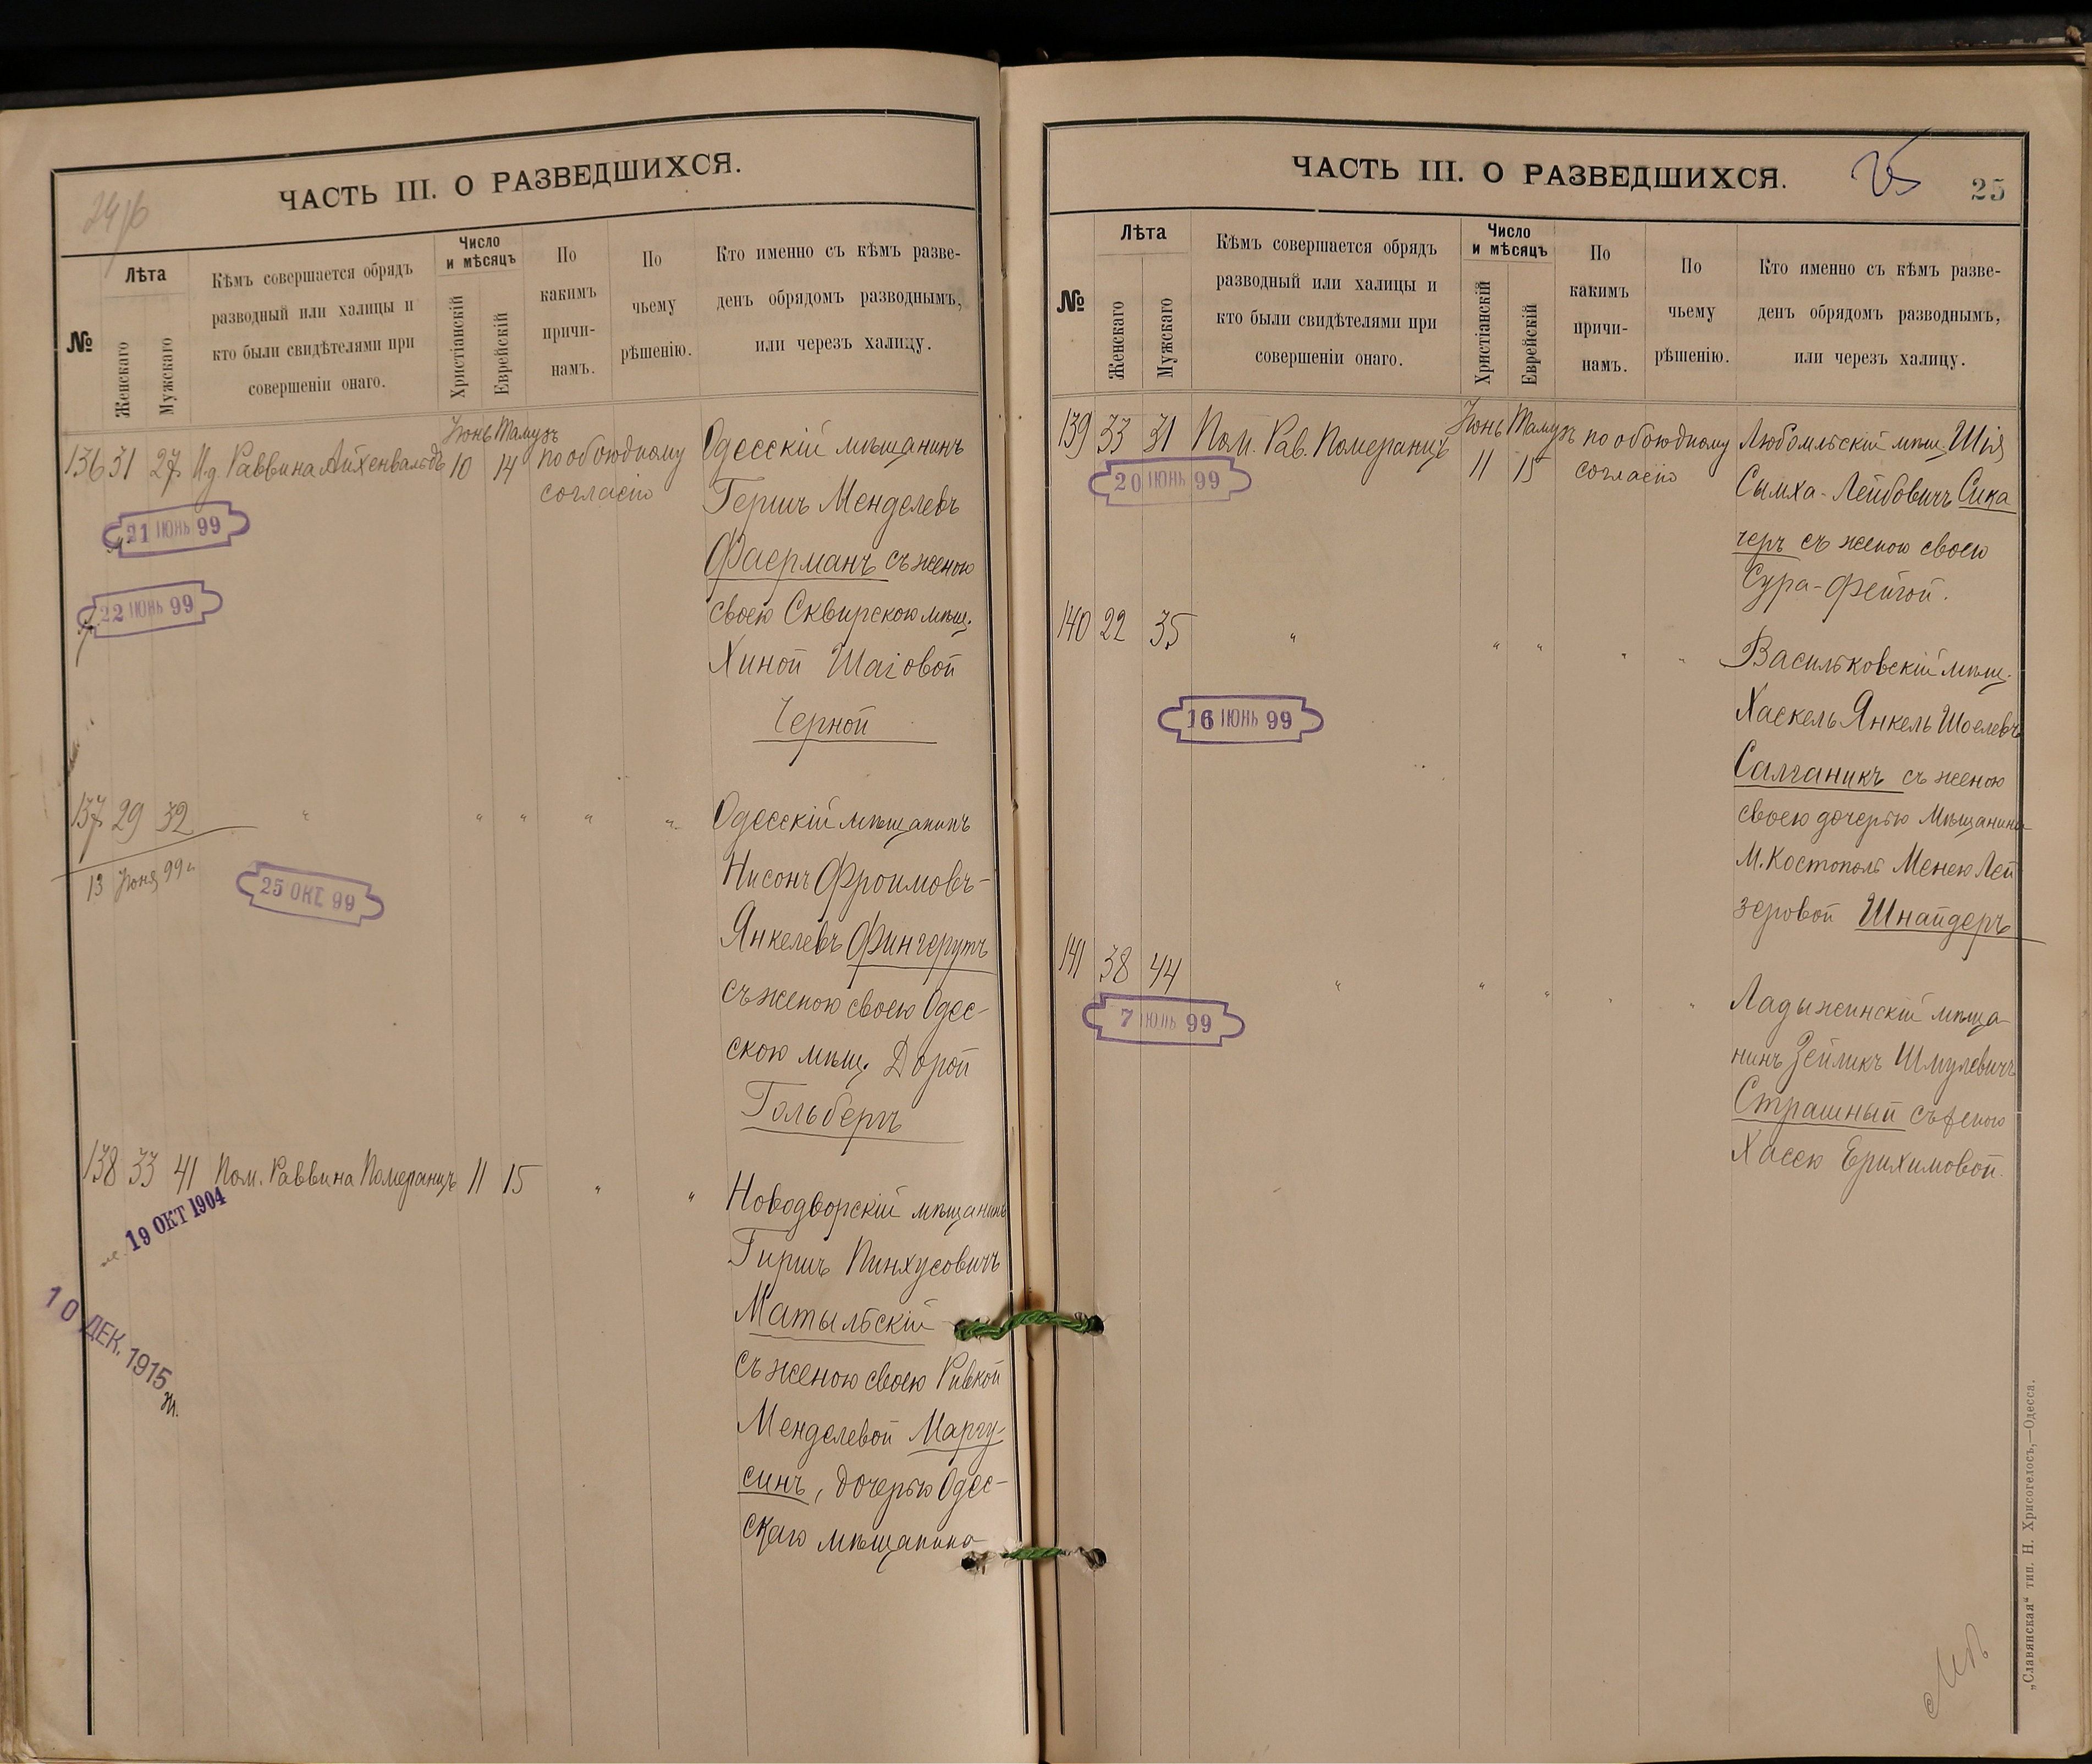 ЧАСТЬ III. О РАЗВЕДШИХСЯ.
№
Лѣта
Женскаго
Мужскаго
Кѣмъ совершается обрядъ
разводный или халицы и
кто были свидѣтелями при
совершеніи онаго.
Число
и мѣсяцъ
Христіанскій
Еврейскій
По
какимъ
причи-
намъ.
По
чьему
рѣшенію.
Кто именно съ кѣмъ разве-
денъ обрядомъ разводнымъ,
или черезъ халицу.
Іюнь Тамузъ
136 31 27 И.д. Раввина Айхенвальдъ 10 14 по обоюдному
согласію
Одесскій мѣщанинъ
Гершъ Менделевъ
Фаерманъ съ женою
своею Сквирскою мѣщ.
Хиной Шаіовой
Черной
21 ІЮНЬ 99
22 ІЮНЬ 99
137 29 32 " " " " "
13 Іюня 99 г.
25 ОКТ 99
Одесскій мѣщанинъ
Нисонъ Фроимовъ-
Янкелевъ Фингерутъ
съ женою своею Одес-
скою мѣщ. Дорой
Гольбергъ
138 33 41 Пом. Раввина Померанцъ 11 15 " "
19 ОКТ 1904
10 ДЕК. 1915
Новодворскій мѣщанинъ
Гиршъ Пинхусовичъ
Матыльскій
съ женою своею Ривкой
Менделевой Маргу-
синъ, дочерью Одес-
скаго мѣщанина
ЧАСТЬ III. О РАЗВЕДШИХСЯ.
25
25
№
Лѣта
Женскаго
Мужскаго
Кѣмъ совершается обрядъ
разводный или халицы и
кто были свидѣтелями при
совершеніи онаго.
Число
и мѣсяцъ
Христіанскій
Еврейскій
По
какимъ
причи-
намъ.
По
чьему
рѣшенію.
Кто именно съ кѣмъ разве-
денъ обрядомъ разводнымъ,
или черезъ халицу.
Іюнь Тамузъ
139 33 31 Пом. Рав. Померанцъ 11 15 по обоюдному
согласію
20 ІЮНЬ 99
Любомльскій мѣщ. Шія
Сымха-Лейбовичъ Сика
черъ съ женою своею
Сура-Фейгой.
140 22 35 " " " " "
16 ІЮНЬ 99
Васильковскій мѣщ.
Хаскель Янкель Шоелевъ
Салганикъ съ женою
своею дочерью мѣщанина
М. Костополь Менею Лей
зеровой Шнайдеръ
141 38 44 " " " " "
7 ІЮЛЬ 99
Ладыжинскій мѣща
нинъ Зейликъ Шмулевичъ
Страшный съ женою
Хасею Ерихимовой.
„Славянская“ тип. Н. Хрисогелосъ,—Одесса.